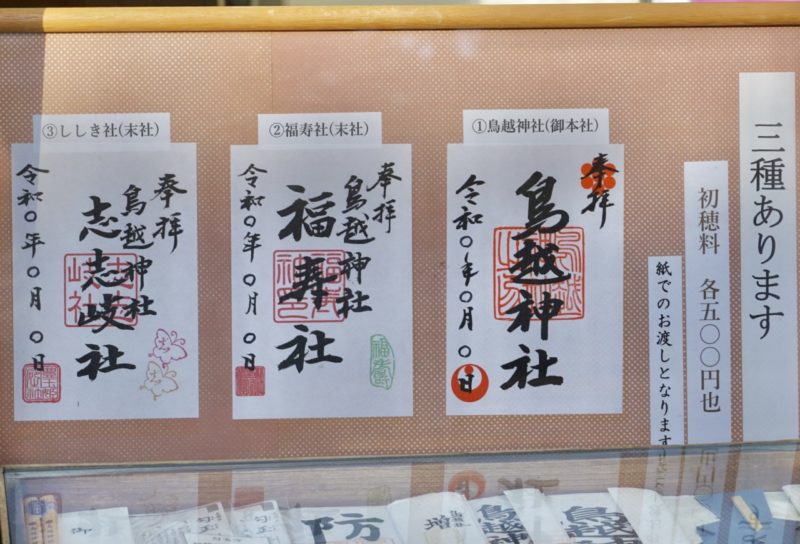 三種あります
初穂料 各五〇〇円也
紙でのお渡しとなります
①鳥越神社(御本社)
奉拝
鳥越神社
令和〇年〇月〇日
②福寿社(末社)
奉拝
鳥越神社
福寿社
令和〇年〇月〇日
福寿
③ししき社(末社)
奉拝
鳥越神社
志志岐社
令和〇年〇月〇日
御
防
増
鳥越
鳥越